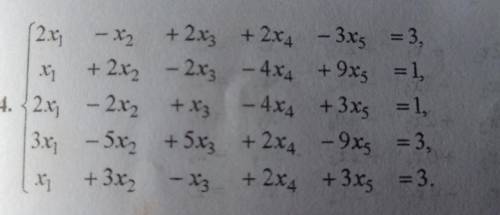 2x₁ − x₂ + 2x₃ + 2x₄ − 3x₅ = 3,
x₁ + 2x₂ − 2x₃ − 4x₄ + 9x₅ = 1,
4. 2x₁ − 2x₂ + x₃ − 4x₄ + 3x₅ = 1,
3x₁ − 5x₂ + 5x₃ + 2x₄ − 9x₅ = 3,
x₁ + 3x₂ − x₃ + 2x₄ + 3x₅ = 3.